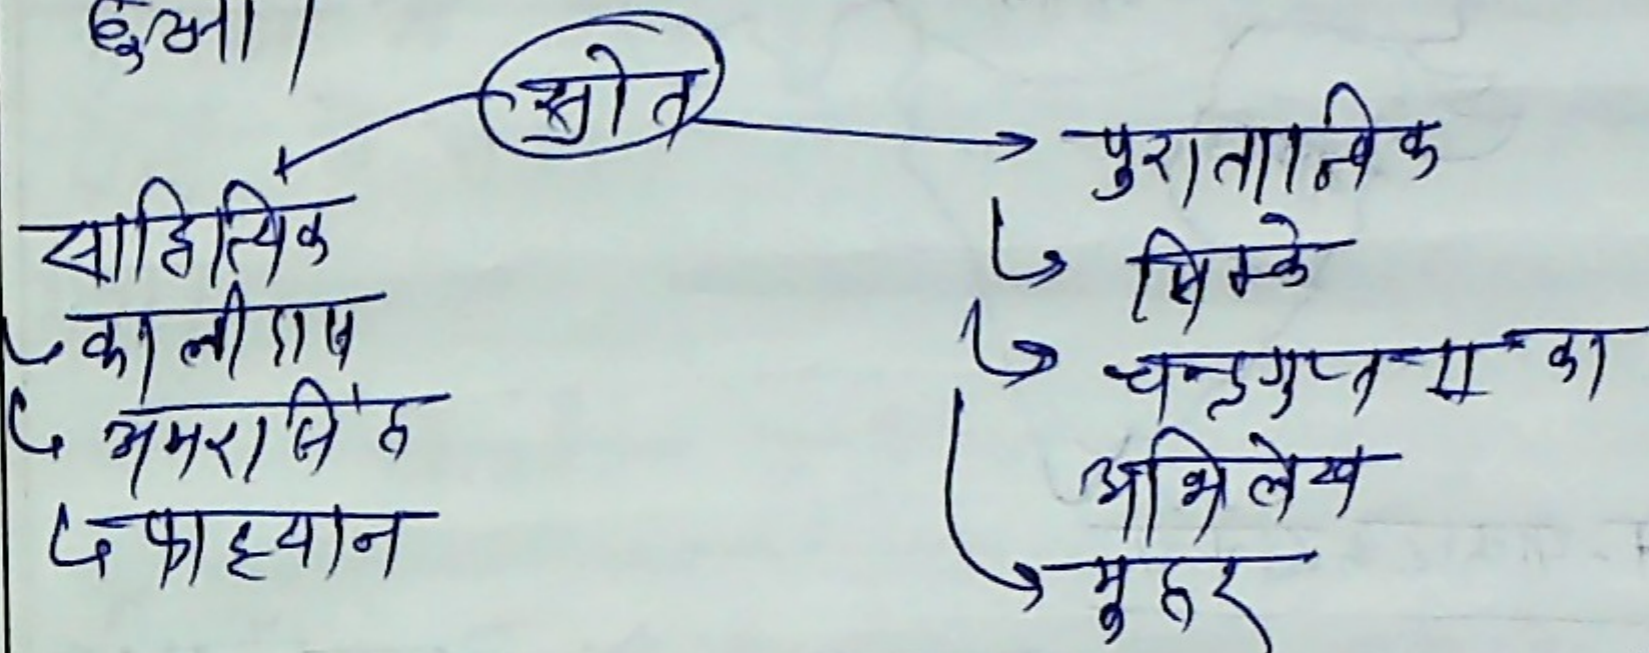 हुआ।
स्रोत
साहित्यिक
कालीदास
अमरसिंह
फाह्यान
पुरातात्विक
सिक्के
चन्द्रगुप्त II का
अभिलेख
मुहर